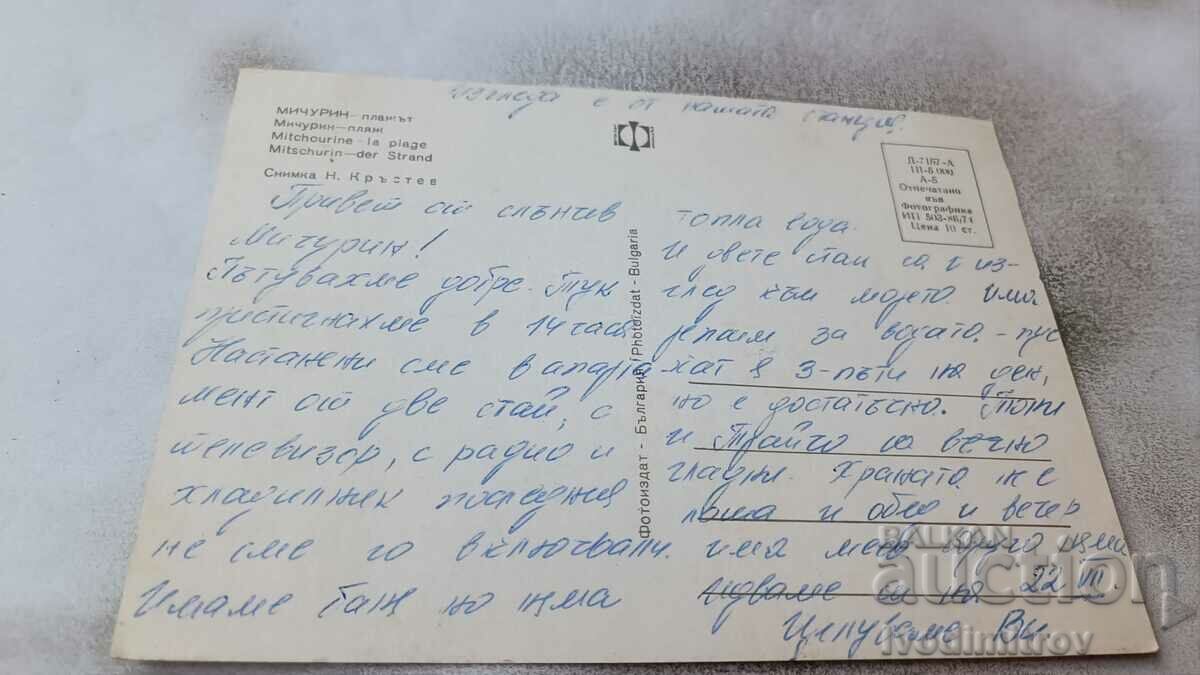 Изгледа е от нашата станция.
МИЧУРИН — плажът
Мичурин — пляж
Mitchourine — la plage
Mitschurin — der Strand
Снимка Н. Кръстев
Д-7187-А
А-Б
Отпечатано
във
Фотографика
Цена 10 ст.
Фотоиздат - България / Photoizdat - Bulgaria
Привет от слънчев
Мичурин!
Пътувахме добре. Тук
пристигнахме в 14 часа
Настанени сме в апарта
мент от две стаи, с
телевизор, с радио и
хладилник последния
не сме го включвали.
Имаме баня но няма
топла вода.
И двете стаи са с из-
глед към морето. Има
режим за водата. - пус
кат я 3-пъти на ден,
но е достатъчно. Тони
и Трайчо са вечно
гладни. Храната не е
лоша и обяд и вечер
има месо друго няма
идваме си на 22 VII.
Целуваме Ви.
BALKAN
auction
ivodimitrov